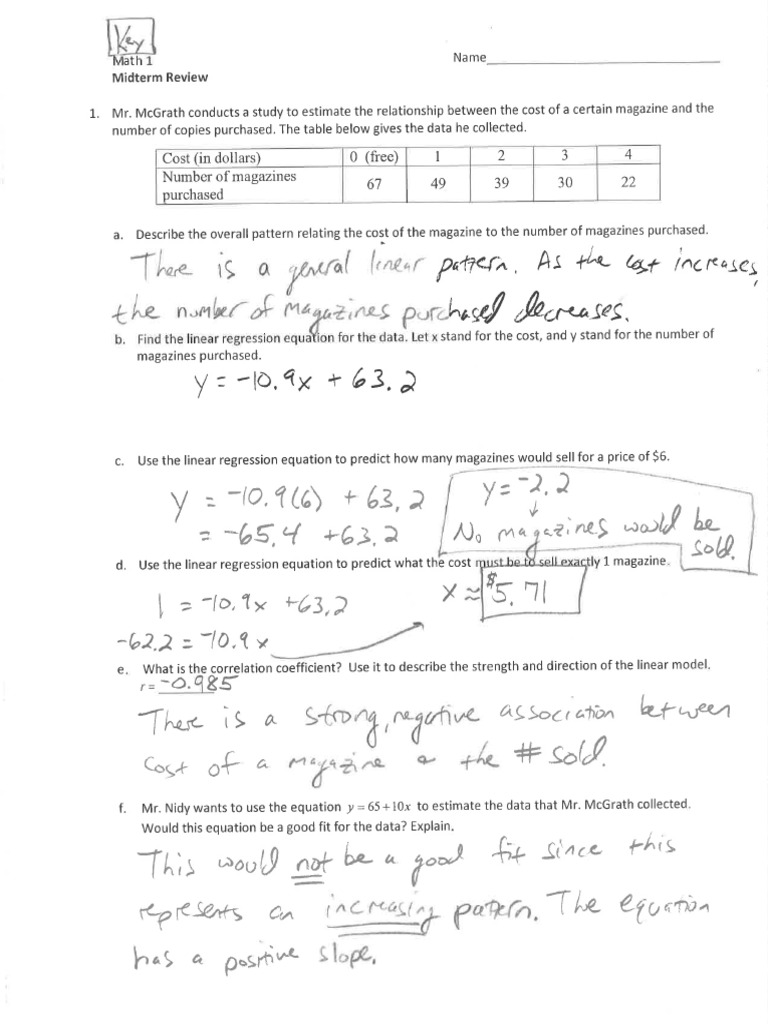 Key
Math 1
Name
Midterm Review
1. Mr. McGrath conducts a study to estimate the relationship between the cost of a certain magazine and the
number of copies purchased. The table below gives the data he collected.
Cost (in dollars) 0 (free) 1 2 3 4
Number of magazines purchased 67 49 39 30 22
a. Describe the overall pattern relating the cost of the magazine to the number of magazines purchased.
There is a general linear pattern. As the cost increases,
the number of magazines purchased decreases.
b. Find the linear regression equation for the data. Let x stand for the cost, and y stand for the number of
magazines purchased.
y = -10.9x + 63.2
c. Use the linear regression equation to predict how many magazines would sell for a price of $6.
y = -10.9(6) + 63.2
= -65.4 + 63.2
y = -2.2
↓
No magazines would be
sold.
d. Use the linear regression equation to predict what the cost must be to sell exactly 1 magazine.
1 = -10.9x + 63.2
-62.2 = -10.9x
x ≈ $5.71
e. What is the correlation coefficient? Use it to describe the strength and direction of the linear model.
r = -0.985
There is a strong, negative association between
cost of a magazine & the # sold.
f. Mr. Nidy wants to use the equation y = 65 + 10x to estimate the data that Mr. McGrath collected.
Would this equation be a good fit for the data? Explain.
This would not be a good fit since this
represents an increasing pattern. The equation
has a positive slope.